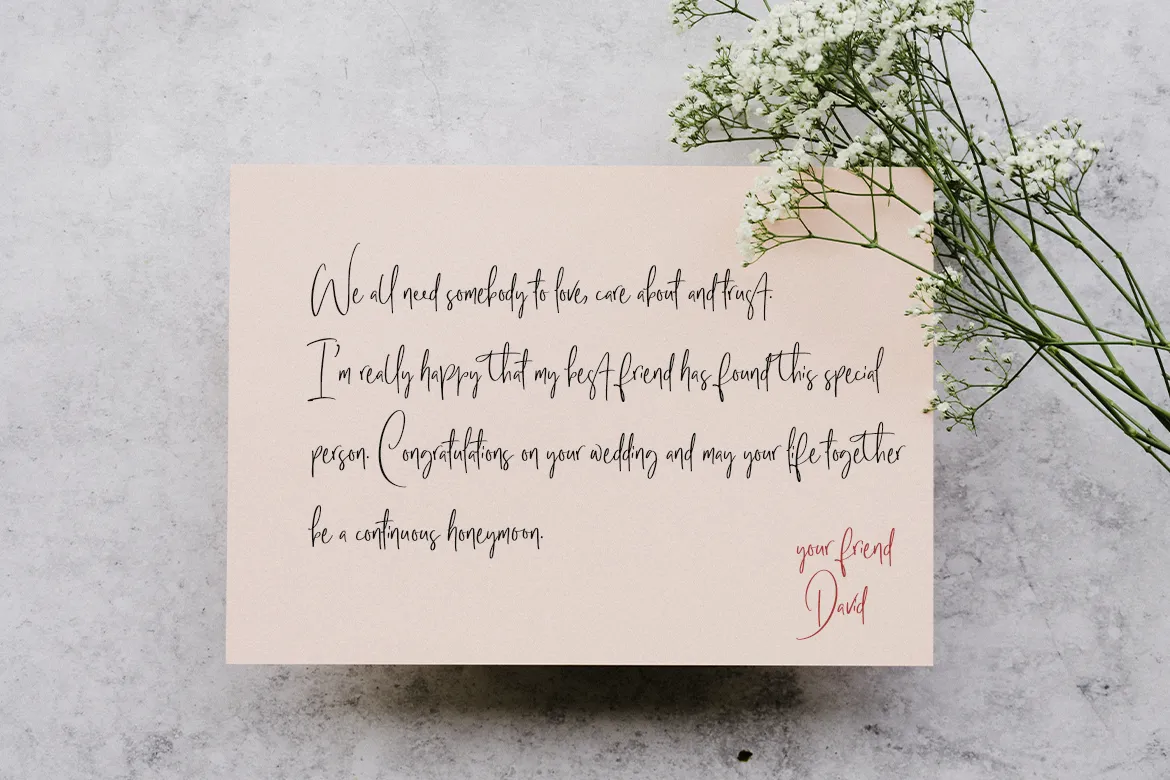 We all need somebody to love, care about and trust.
I'm really happy that my best friend has found this special
person. Congratulations on your wedding and may your life together
be a continuous honeymoon.
your friend
David